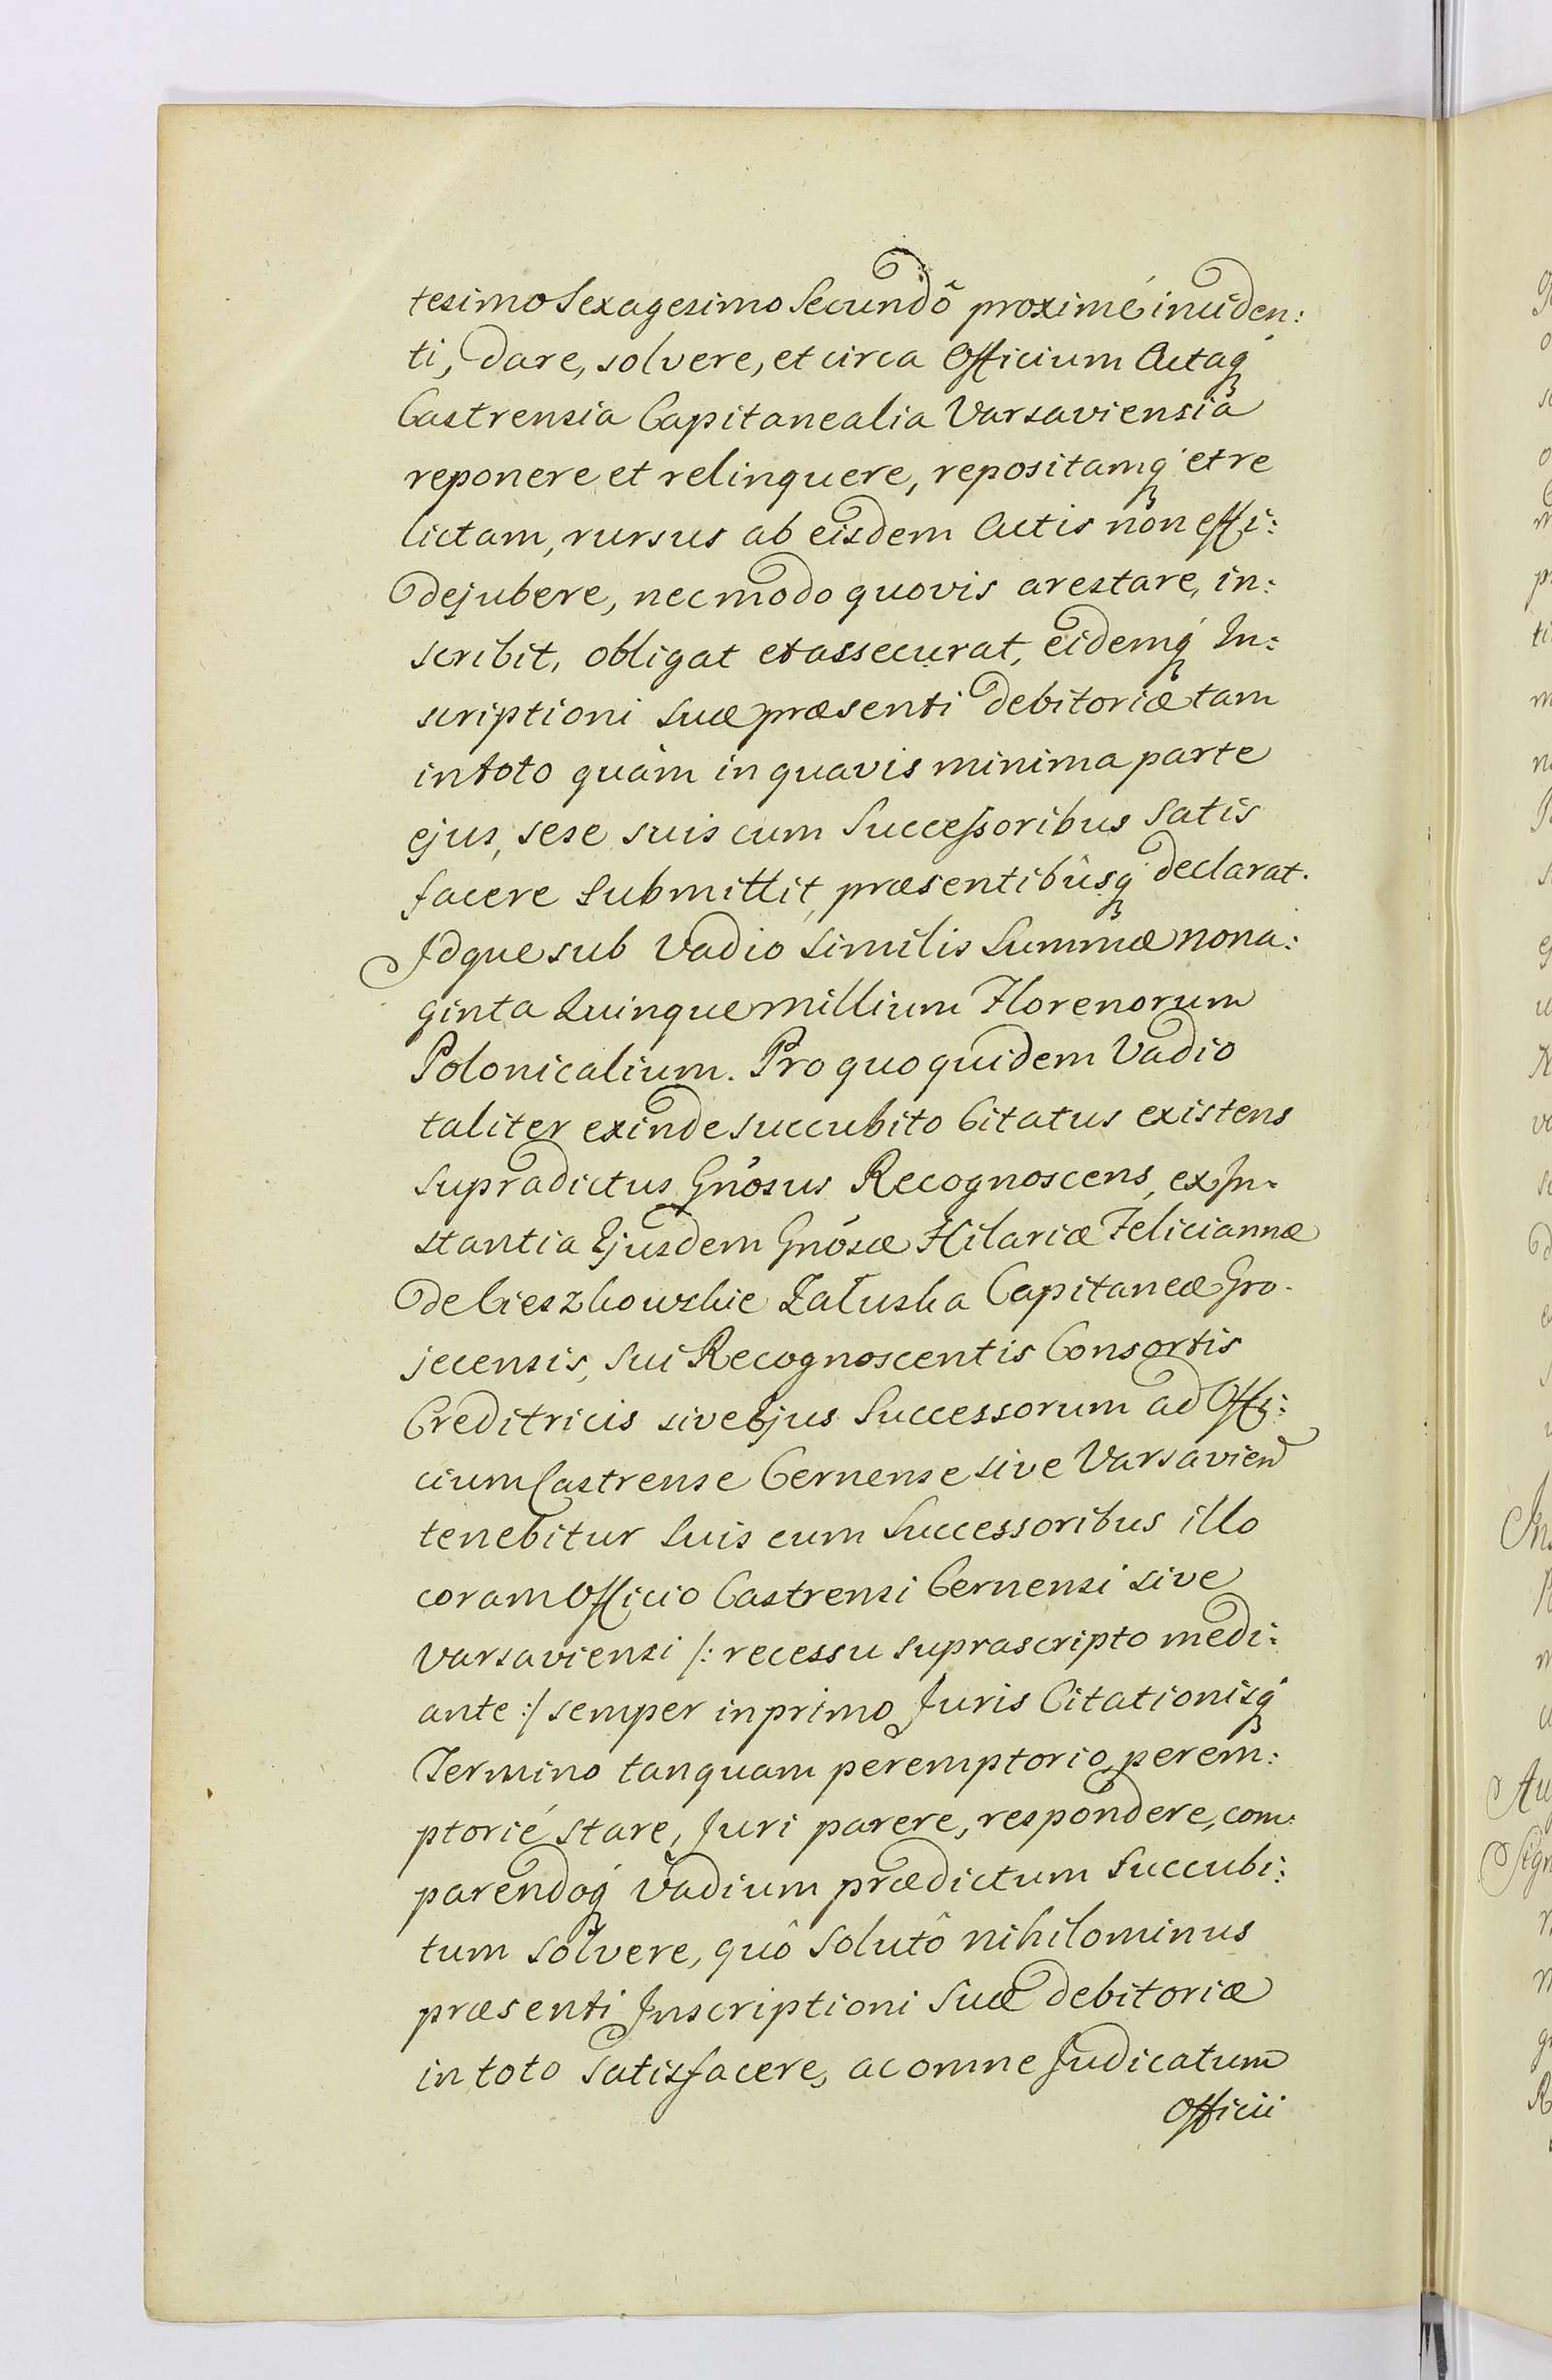 tesimo Sexagesimo Secundô proximé inciden:
ti, dare, solvere, et circa Officium Actaq́
Castrensia Capitanealia Varsaviensia
reponere et relinquere, repositamq́ et re
lictam, rursus ab eisdem Actis non effi:
dejubere, nec modo quovis arestare, in:
scribit, obligat et assecurat, eidemq́ In:
scriptioni suæ præsenti debitoriæ tam
in toto quàm in quavis minima parte
ejus, sese suis cum Successoribus Satis
facere Submittit, præsentibûsq́ declarat.
Idque sub Vadio similis Summæ nona:
ginta Quinque millium Florenorum
Polonicalium. Pro quo quidem Vadio
taliter exinde succubito Citatus existens
supradictus Gnósus Recognoscens, ex In-
stantia Ejusdem Gnósæ Hilariæ Feliciannæ
de Cieszkowskie Załuska Capitaneæ Gro-
jecensis, sui Recognoscentis Consortis
Creditricis sive Ejus Successorum ad Offi:
cium Castrense Cernense sive Varsavien
tenebitur Suis cum Successoribus illo
coram Officio Castrensi Cernensi sive
Varsaviensi /: recessu suprascripto medi:
ante :/ semper in primo Juris Citationisq́
Termino tanquam peremptorio, perem:
ptorié stare, Juri parere, respondere, com:
parendoq́ Vadium prædictum Succubi:
tum solvere, quô Solutô nihilominus
præsenti Inscriptioni Suæ debitoriæ
in toto Satisfacere, ac omne Judicatum
Officii